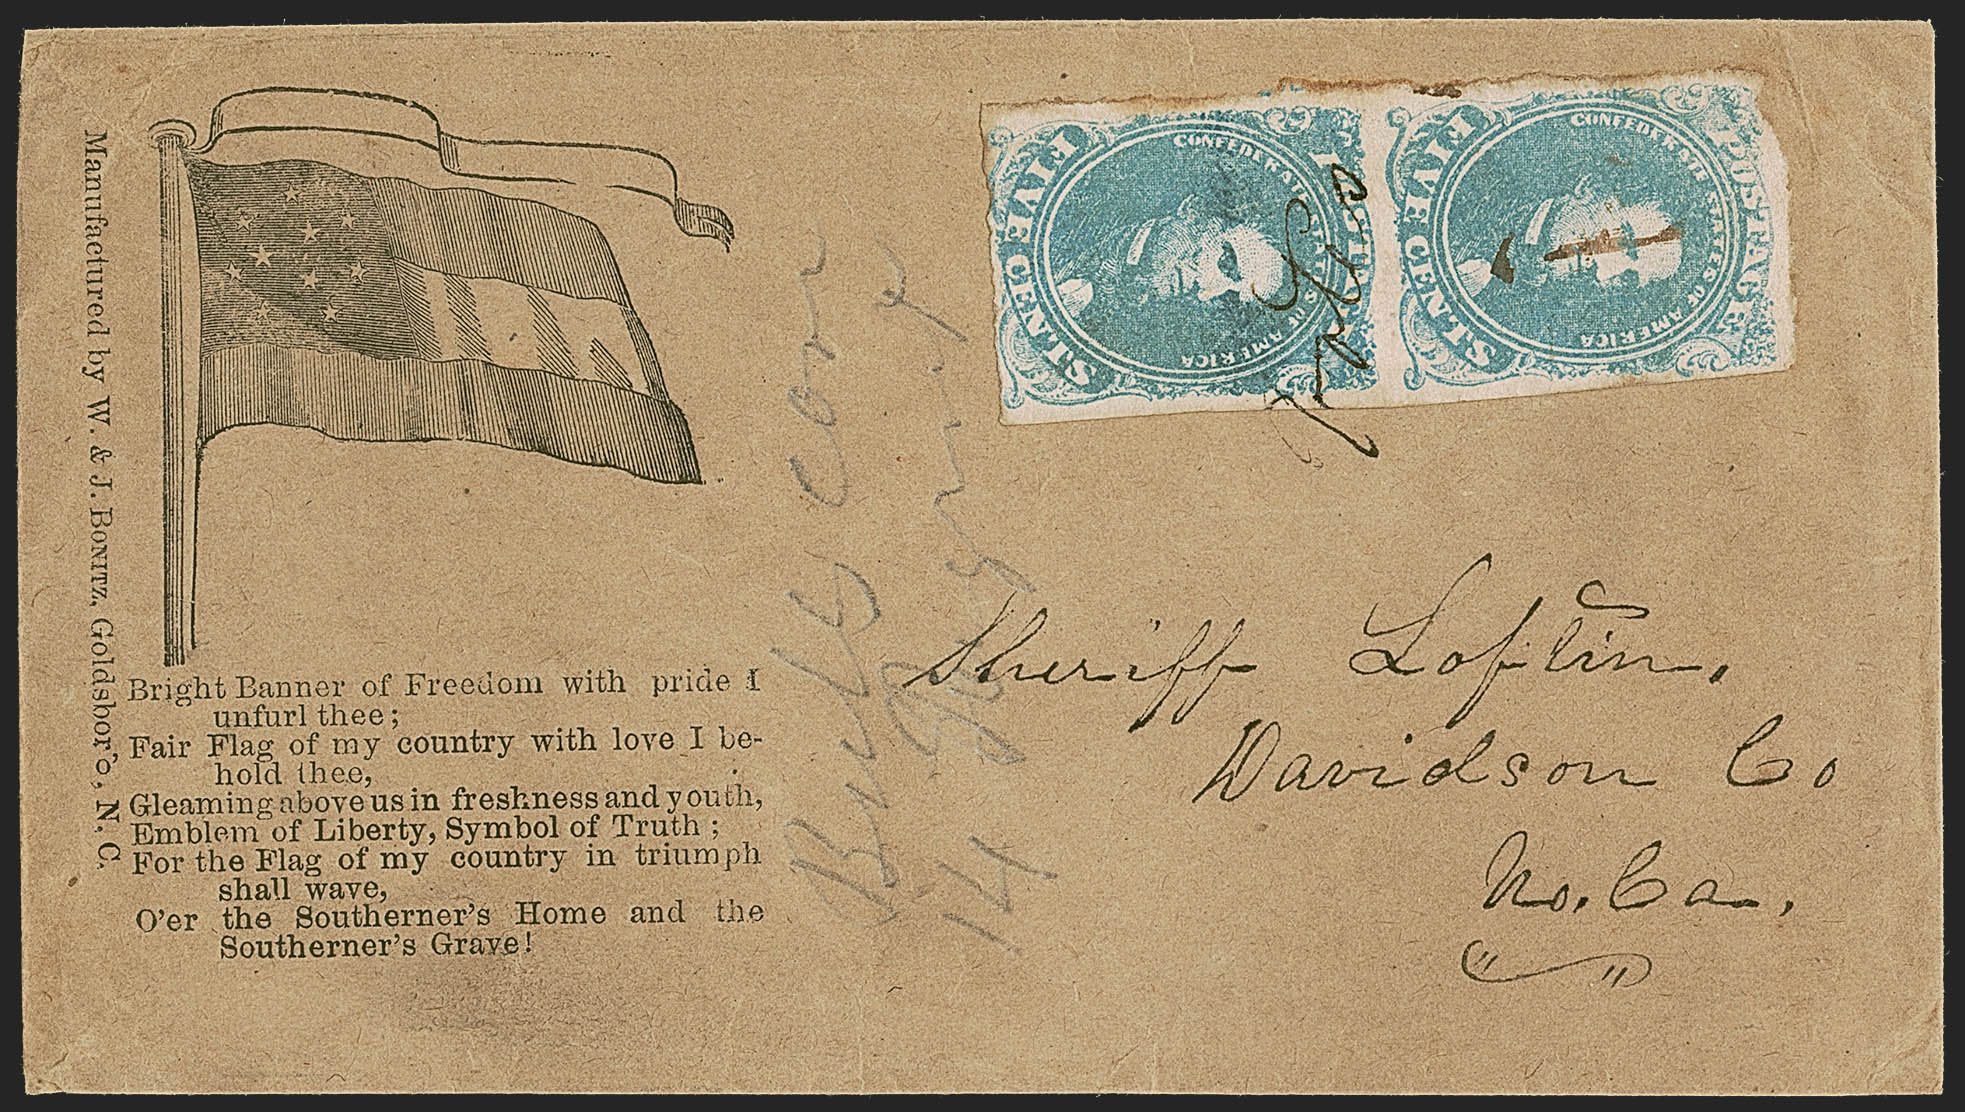 Manufactured by W. & J. BONITZ, Goldsboro, N. C.
Bright Banner of Freedom with pride I
unfurl thee;
Fair Flag of my country with love I be-
hold thee,
Gleaming above us in freshness and youth,
Emblem of Liberty, Symbol of Truth;
For the Flag of my country in triumph
shall wave,
O'er the Southerner's Home and the
Southerner's Grave!
POSTAGE
CONFEDERATE STATES OF AMERICA
FIVE CENTS
POSTAGE
CONFEDERATE STATES OF AMERICA
FIVE CENTS
Sheriff Loftin,
Davidson Co
No. Ca.,